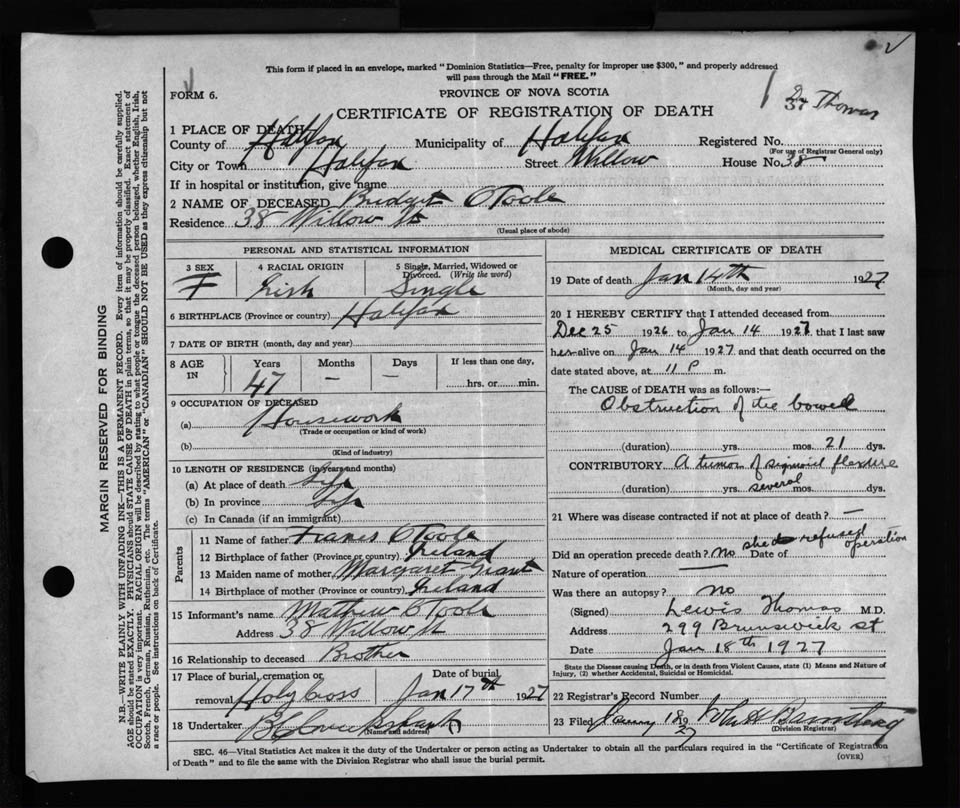 This form if placed in an envelope, marked "Dominion Statistics—Free, penalty for improper use $300," and properly addressed
will pass through the Mail "FREE."
FORM 6.
PROVINCE OF NOVA SCOTIA
Dr Thomas
37
CERTIFICATE OF REGISTRATION OF DEATH
1 PLACE OF DEATH
County of Halifax Municipality of Halifax Registered No.
(For use of Registrar General only)
City or Town Halifax Street Willow House No. 38
If in hospital or institution, give name
2 NAME OF DECEASED Bridget O'Toole
Residence 38 Willow St
(Usual place of abode)
PERSONAL AND STATISTICAL INFORMATION
3 SEX 4 RACIAL ORIGIN 5 Single, Married, Widowed or Divorced. (Write the word)
F Irish Single
6 BIRTHPLACE (Province or country) Halifax
7 DATE OF BIRTH (month, day and year)
8 AGE IN Years Months Days If less than one day,
47 — — hrs. or min.
9 OCCUPATION OF DECEASED
(a) Housework
(Trade or occupation or kind of work)
(b)
(Kind of industry)
10 LENGTH OF RESIDENCE (in years and months)
(a) At place of death Life
(b) In province Life
(c) In Canada (if an immigrant)
Parents
11 Name of father Frances O'Toole
12 Birthplace of father (Province or country) Ireland
13 Maiden name of mother Margaret Grant
14 Birthplace of mother (Province or country) Ireland
15 Informant's name Mathew O'Toole
Address 38 Willow St
16 Relationship to deceased Brother
17 Place of burial, cremation or removal Holy Cross Date of burial Jan 17th 1927
18 Undertaker
(Name and address)
MEDICAL CERTIFICATE OF DEATH
19 Date of death Jan 14th 1927
(Month, day and year)
20 I HEREBY CERTIFY that I attended deceased from
Dec 25 1926 to Jan 14 1927 that I last saw
her alive on Jan 14 1927 and that death occurred on the
date stated above, at 11 P m.
The CAUSE of DEATH was as follows:—
Obstruction of the bowel
(duration) yrs. mos. 21 dys.
CONTRIBUTORY A tumor of sigmoid flexure
(duration) yrs. several mos. dys.
21 Where was disease contracted if not at place of death? —
Did an operation precede death? no Date of she refused operation
Nature of operation —
Was there an autopsy? no
(Signed) Lewis Thomas M.D.
Address 299 Brunswick St
Date Jan 18th 1927
State the Disease causing Death, or in death from Violent Causes, state (1) Means and Nature of
Injury, (2) whether Accidental, Suicidal or Homicidal.
22 Registrar's Record Number
23 Filed
(Division Registrar)
SEC. 46—Vital Statistics Act makes it the duty of the Undertaker or person acting as Undertaker to obtain all the particulars required in the "Certificate of Registration
of Death" and to file the same with the Division Registrar who shall issue the burial permit.
(OVER)
MARGIN RESERVED FOR BINDING
N.B.—WRITE PLAINLY WITH UNFADING INK—THIS IS A PERMANENT RECORD. Every item of information should be carefully supplied.
AGE should be stated EXACTLY. PHYSICIANS should STATE CAUSE OF DEATH in plain terms, so that it may be properly classified. Exact statement of
OCCUPATION is very important. RACIAL ORIGIN will be described by stating to what people or tongue the deceased person belonged, whether English, Irish,
Scotch, French, German, Russian, Ruthenian, etc. The terms "AMERICAN" or "CANADIAN" SHOULD NOT BE USED as they express citizenship but not
a race or people. See instructions on back of Certificate.